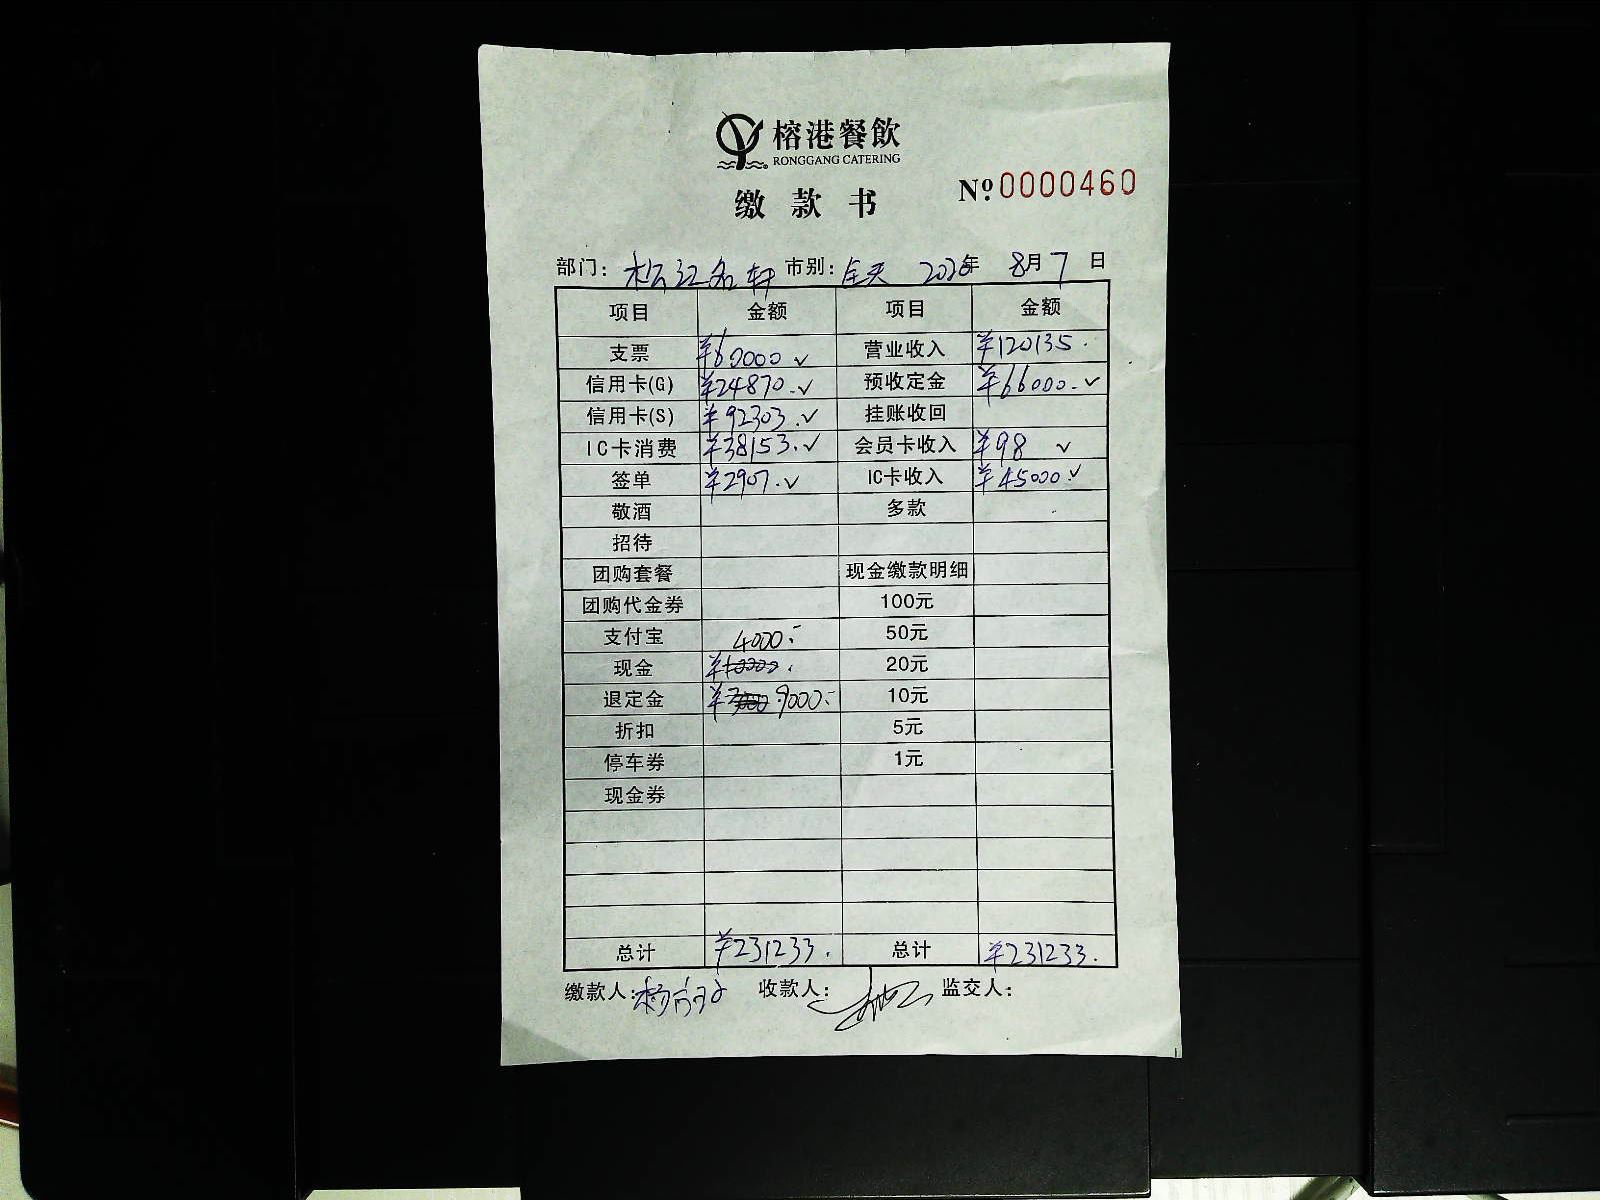 榕港餐飲
RONGGANG CATERING
缴款书
№ 0000460
部门：松江名轩 市别：全天 2020年 8月7日
项目 金额 项目 金额
支票 ¥60000 ✓ 营业收入 ¥120135.
信用卡(G) ¥24870.✓ 预收定金 ¥66000.✓
信用卡(S) ¥92303.✓ 挂账收回
IC卡消费 ¥38153.✓ 会员卡收入 ¥98 ✓
签单 ¥2907.✓ IC卡收入 ¥45000.✓
敬酒 多款
招待
团购套餐 现金缴款明细
团购代金券 100元
支付宝 4000.- 50元
现金 ¥ 20元
退定金 ¥ 9000.- 10元
折扣 5元
停车券 1元
现金券
总计 ¥231233. 总计 ¥231233.
缴款人：杨 收款人： 监交人：